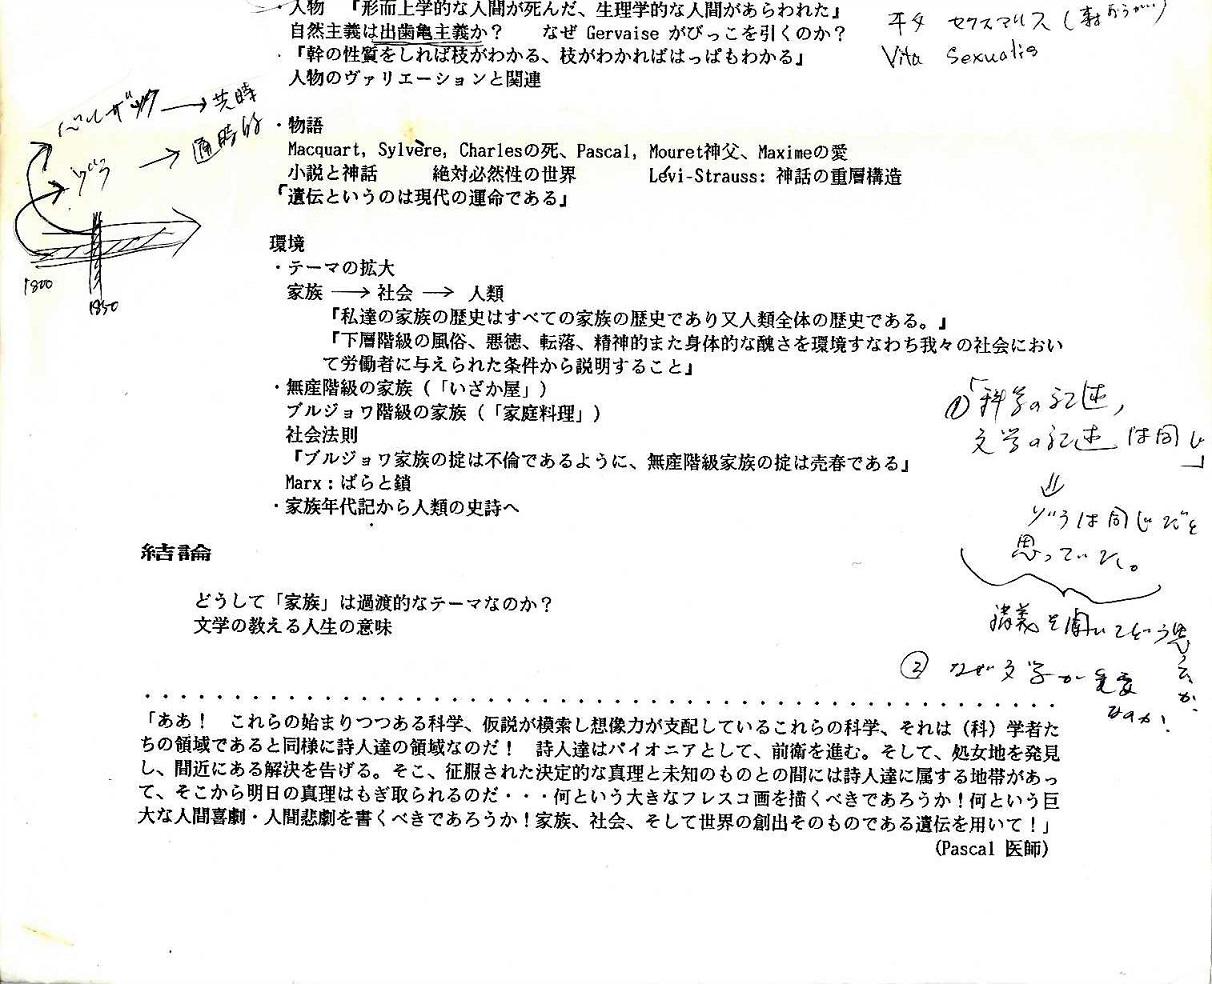 ・人物　『形而上学的な人間が死んだ、生理学的な人間があらわれた』
自然主義は出歯亀主義か？　　なぜ Gervaise がびっこを引くのか？
・『幹の性質をしれば枝がわかる、枝がわかればはっぱもわかる』
人物のヴァリエーションと関連
セクスアリス（
Vita Sexualis
バルザック → 共時
ゾラ → 通時的
1800
1850
・物語
Macquart, Sylvère, Charlesの死、Pascal, Mouret神父、Maximeの愛
小説と神話　　　絶対必然性の世界　　　　Lévi-Strauss: 神話の重層構造
『遺伝というのは現代の運命である』
環境
・テーマの拡大
家族 → 社会 → 人類
『私達の家族の歴史はすべての家族の歴史であり又人類全体の歴史である。』
『下層階級の風俗、悪徳、転落、精神的また身体的な醜さを環境すなわち我々の社会におい
て労働者に与えられた条件から説明すること』
・無産階級の家族（「いざか屋」）
ブルジョワ階級の家族（「家庭料理」）
社会法則
『ブルジョワ家族の掟は不倫であるように、無産階級家族の掟は売春である』
Marx：ばらと鎖
・家族年代記から人類の史詩へ
①「科学の記述，
文学の記述は同じ」
⇓
ゾラは同じだと
思っていた。
講義を聞いてどう思うか。
② なぜ文学が重要
なのか！
結論
どうして「家族」は過渡的なテーマなのか？
文学の教える人生の意味
「ああ！　これらの始まりつつある科学、仮説が模索し想像力が支配しているこれらの科学、それは（科）学者た
ちの領域であると同様に詩人達の領域なのだ！　詩人達はパイオニアとして、前衛を進む。そして、処女地を発見
し、間近にある解決を告げる。そこ、征服された決定的な真理と未知のものとの間には詩人達に属する地帯があっ
て、そこから明日の真理はもぎ取られるのだ・・・何という大きなフレスコ画を描くべきであろうか！何という巨
大な人間喜劇・人間悲劇を書くべきであろうか！家族、社会、そして世界の創出そのものである遺伝を用いて！」
（Pascal 医師）